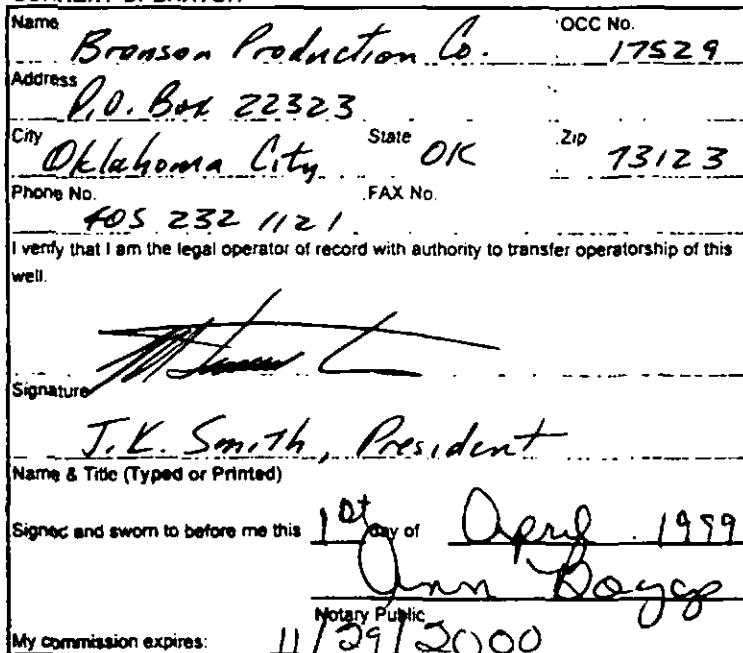 Name OCC No.
Branson Production Co. 17529
Address
P.O. Box 22323
City State Zip
Oklahoma City OK 73123
Phone No. FAX No.
405 232 1121
I verify that I am the legal operator of record with authority to transfer operatorship of this
well.
Signature
J.K. Smith, President
Name & Title (Typed or Printed)
Signed and sworn to before me this 1st day of April 1999
Ann
Notary Public
My commission expires: 11/29/2000